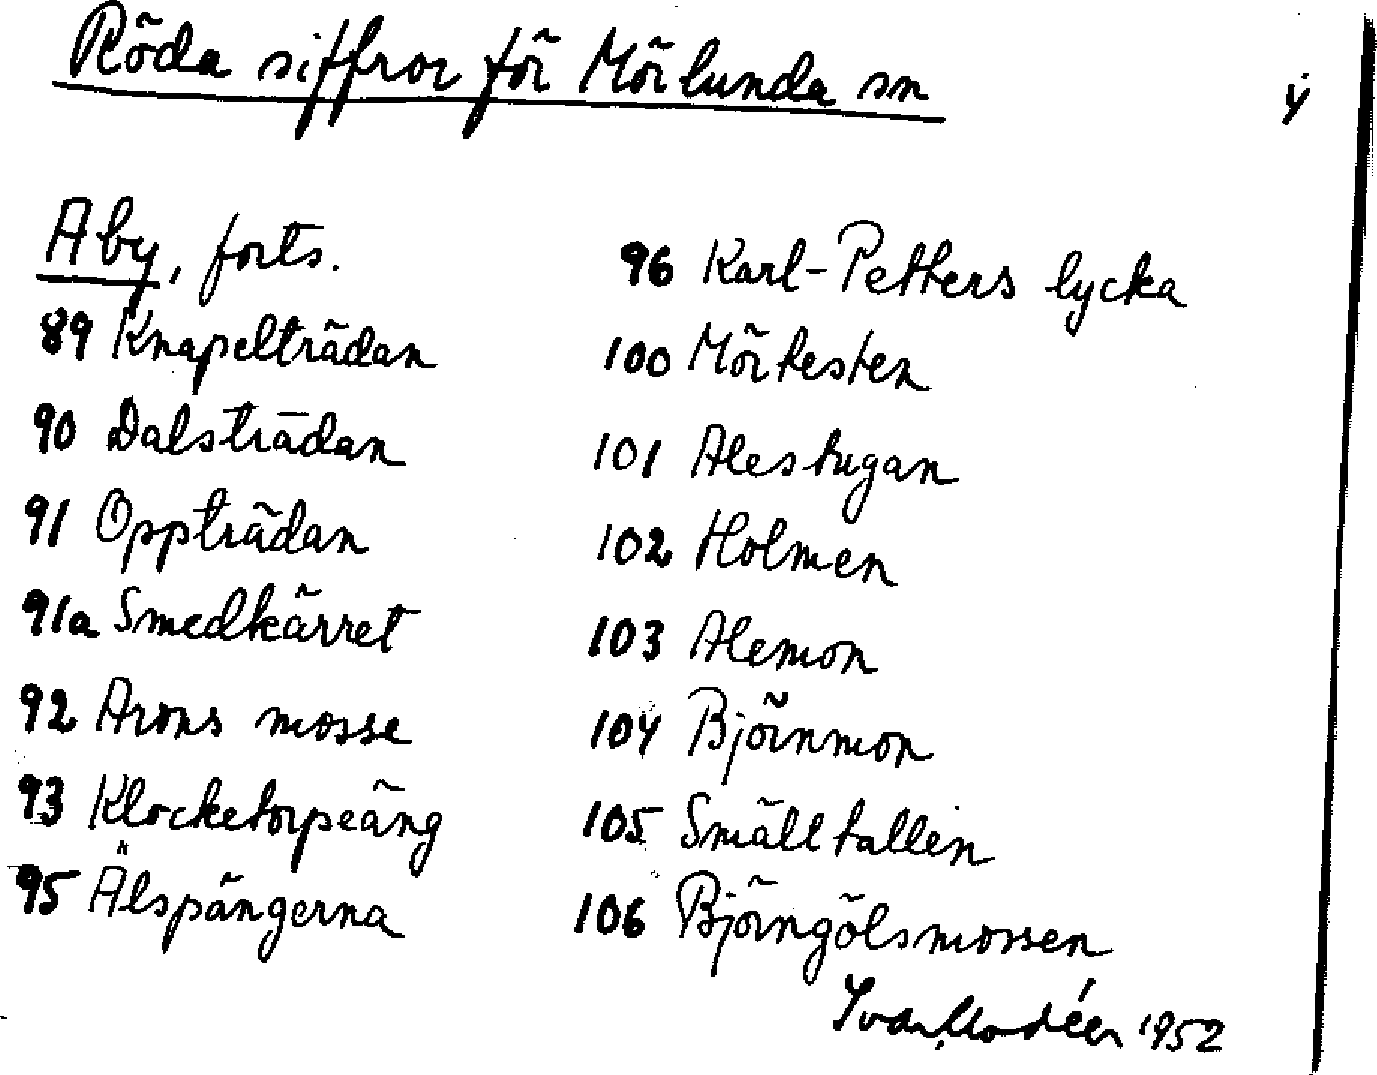 Röda siffror för Mörlunda sn
Åby, forts.
89 Knapelträdan
90 Dalsträdan
91 Oppträdan
91a Smedkärret
92 Arons mosse
93 Klocketorpeäng
95 Älspängerna
96 Karl-Petters lycka
100 Mörtesten
101 Alestugan
102 Holmen
103 Alemon
104 Björnmon
105 Smälltallen
106 Björngölsmossen
Ivar Modéer 1952